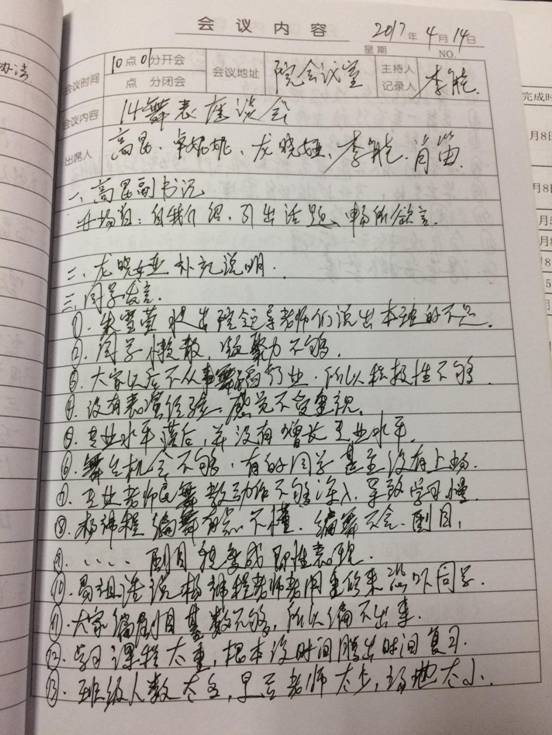 办法
完成时
会议内容
2017年4月14日
星期 NO.
会议时间 10点01分开会 点 分闭会 会议地址 院会议室 主持人 记录人 李
会议内容 14舞表座谈会
出席人 高昆、龙晓娅、李 肖笛
一、高昆副书记
开场白:自我介绍,引出话题,畅所欲言.
二、龙晓娅补充说明.
三、同学发言.
①.朱雪莹 提出院领导老师们说出本班的不足.
②.同学懒散,凝聚力不够.
③.大家以后不从事舞蹈行业.所以积极性不够.
④.没有表演经验.感觉不受重视.
⑤.专业水平落后,并没有增长专业水平.
⑥.舞台机会不够,有的同学甚至没有上场.
⑦.专业老师民舞教动作不够深入,导致学习慢
⑧.杨 程编舞 不懂.编舞不会.剧目,
⑨..... 剧目 变成即性表现.
⑩. 说杨 程老师 同学.
⑪.大家编剧目基数不够,所以编不出来.
⑫.实习课程太重,根本没时间腾出时间复习.
⑬.班级人数太多, 老师太少,场地太小.